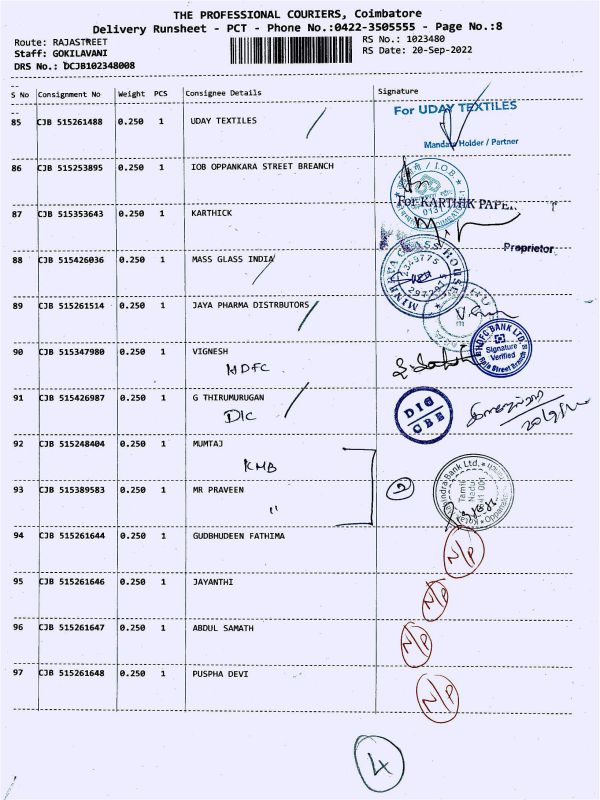 THE PROFESSIONAL COURIERS, Coimbatore
Delivery Runsheet - PCT - Phone No.:0422-3505555 - Page No.:8
Route: RAJASTREET
RS No.: 1023480
Staff: GOKILAVANI
RS Date: 20-Sep-2022
DRS No.: DCJB102348008
S No Consignment No Weight PCS Consignee Details Signature
85 CJB 515261488 0.250 1 UDAY TEXTILES
For UDAY TEXTILES
Mandate Holder / Partner
86 CJB 515253895 0.250 1 IOB OPPANKARA STREET BREANCH
I.O.B.
0131
87 CJB 515353643 0.250 1 KARTHICK
For KARTHIK PAPER
Proprietor
88 CJB 515426036 0.250 1 MASS GLASS INDIA
MINERVA GLASS HOUSE
2349775
89 CJB 515261514 0.250 1 JAYA PHARMA DISTRBUTORS
90 CJB 515347980 0.250 1 VIGNESH
HDFC
HDFC BANK LTD.
Signature
Verified
Raja Street Branch
91 CJB 515426987 0.250 1 G THIRUMURUGAN
DIC
DIC
CBE
92 CJB 515248404 0.250 1 MUMTAJ
KMB
93 CJB 515389583 0.250 1 MR PRAVEEN
"
2
Mahindra Bank Ltd.
Tamil
Nadu
94 CJB 515261644 0.250 1 GUDBHUDEEN FATHIMA
N/P
95 CJB 515261646 0.250 1 JAYANTHI
N/P
96 CJB 515261647 0.250 1 ABDUL SAMATH
N/P
97 CJB 515261648 0.250 1 PUSPHA DEVI
N/P
4